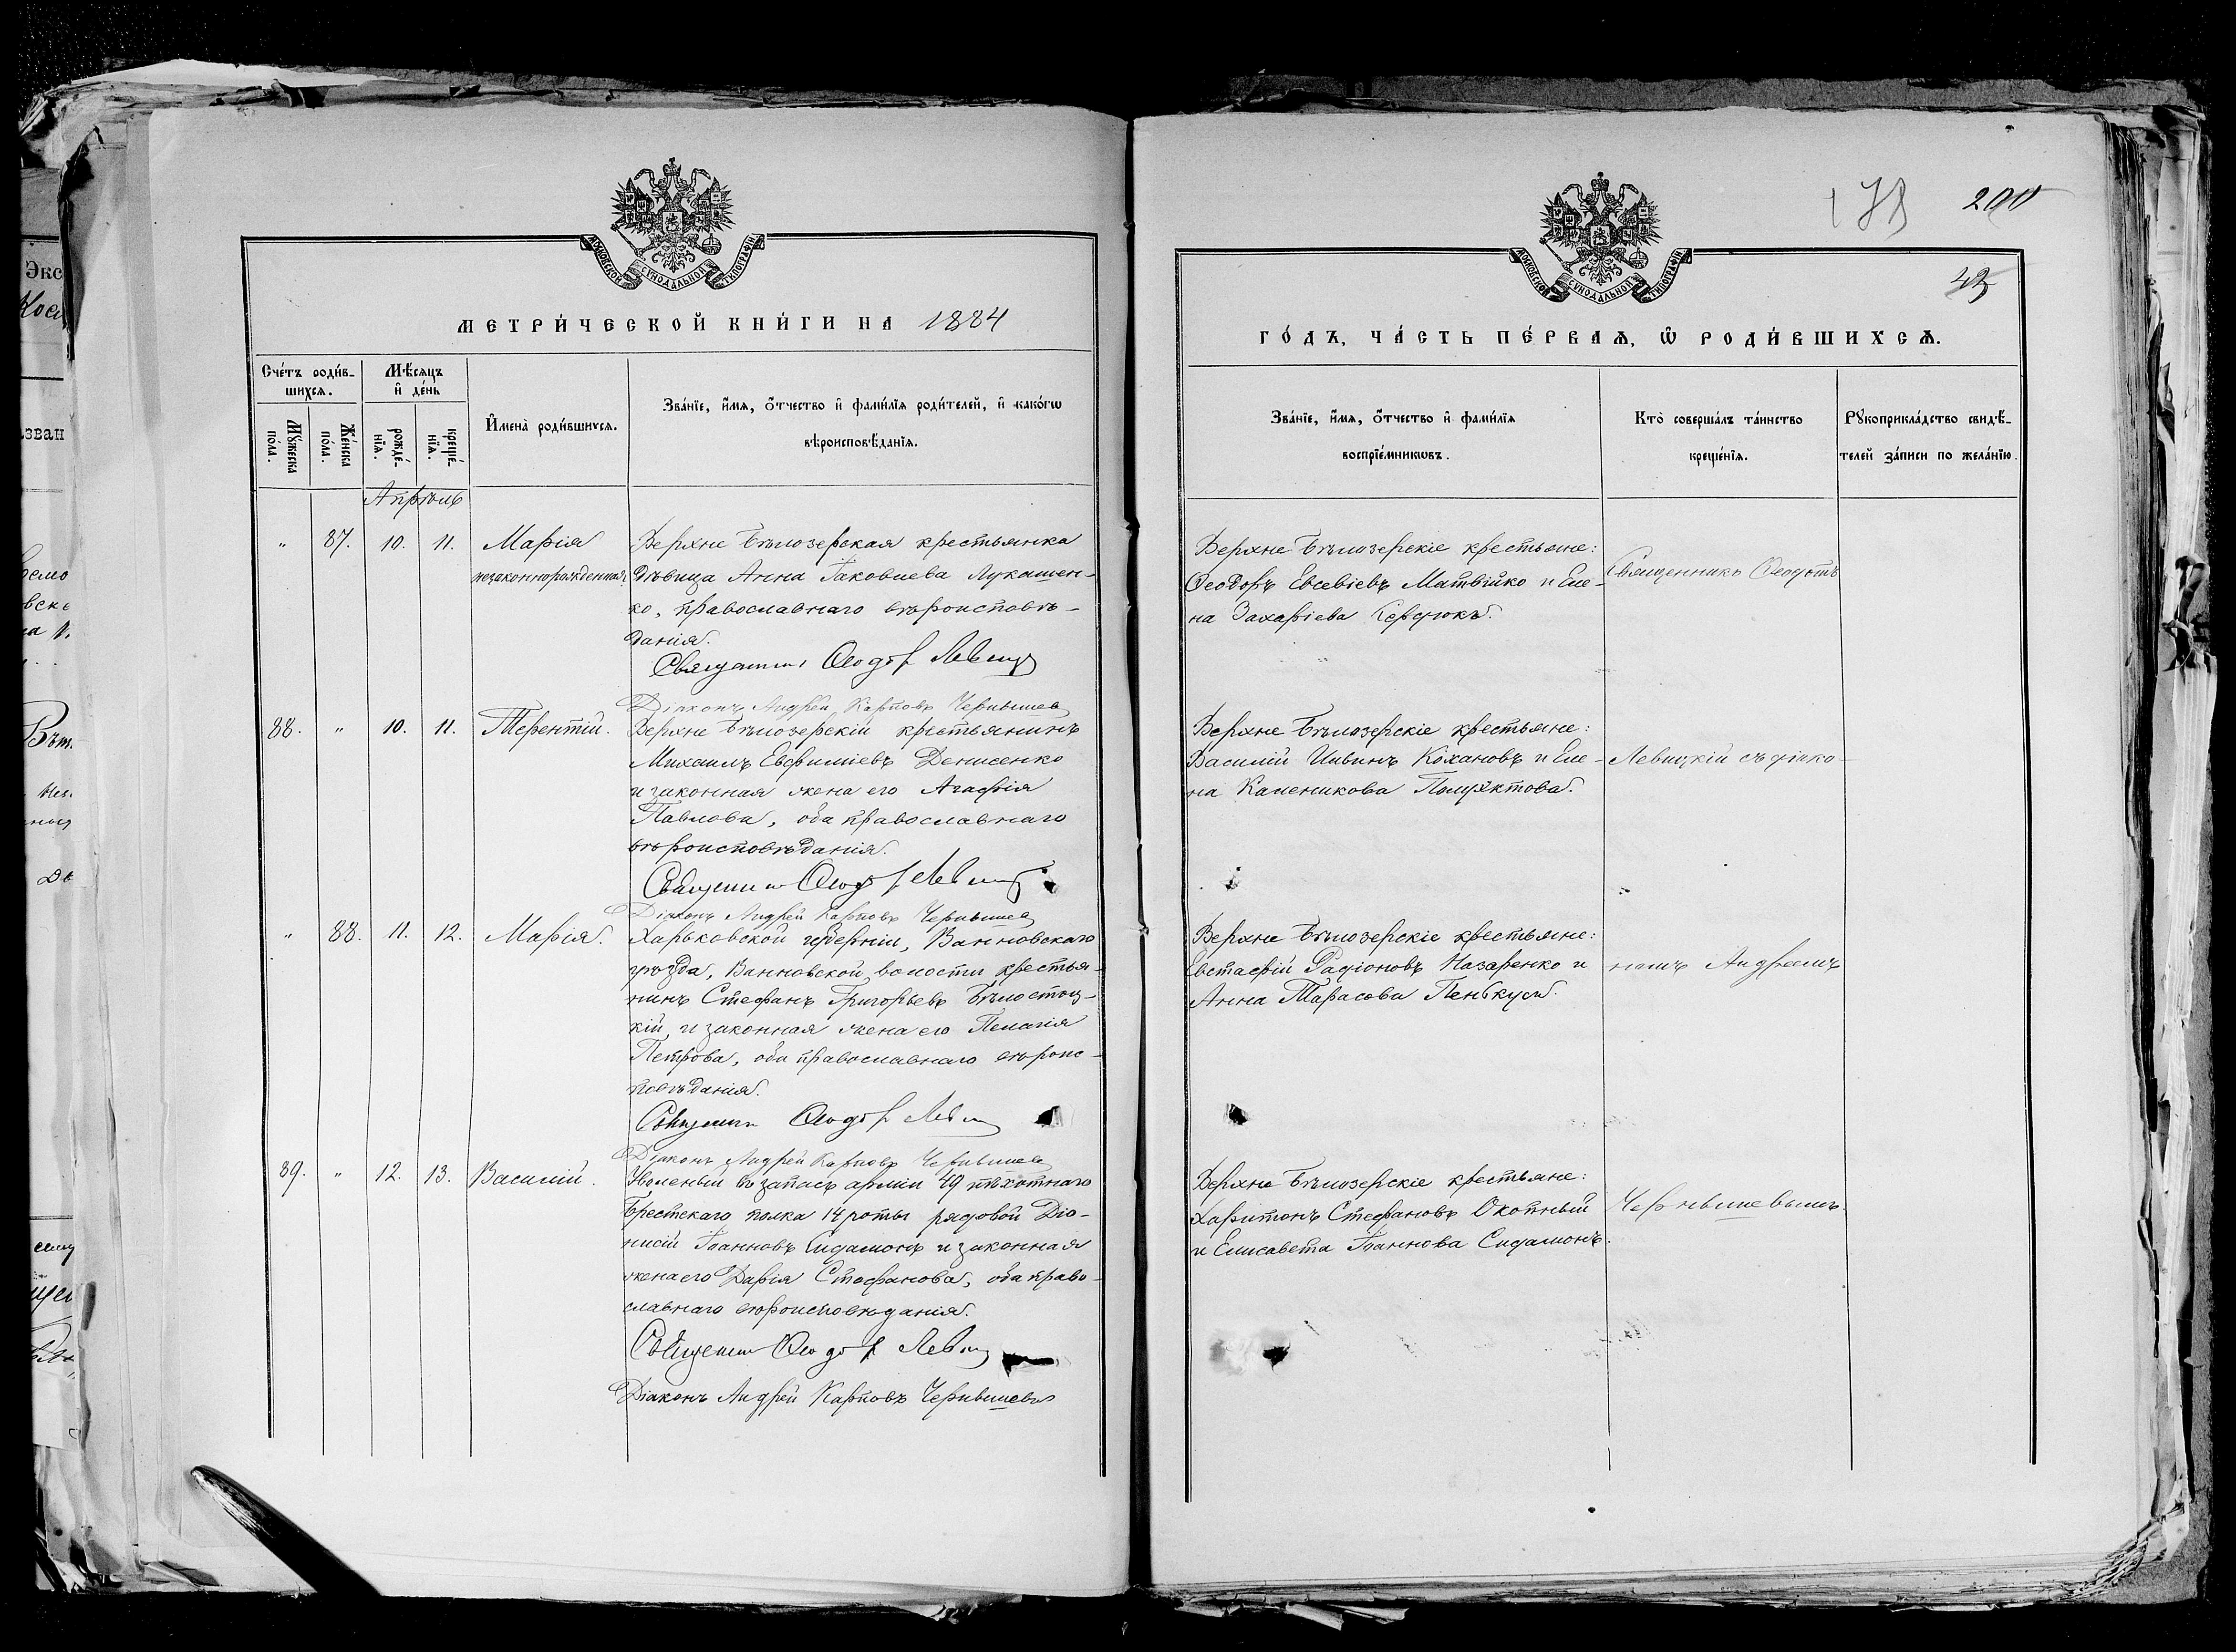 МОСКОВСКОЙ СѴНОДАЛЬНОЙ ТИПОГРАФІИ
МЕТРИ́ЧЕСКОЙ КНИ́ГИ НА 1884
Сче́тъ роди́в-
шихсѧ.
Мѣ́сѧцъ
и҆ де́нь
Мꙋ́жеска
по́ла.
Же́нска
по́ла.
рожде́-
нїѧ.
креще́-
нїѧ.
И҆мена̀ роди́вшихсѧ.
Зва́нїе, и҆́мѧ, ѻ҆́тчество и҆ фами́лїѧ роди́телей, и҆ како́гѡ
вѣроисповѣ́данїѧ.
Апрѣль
" 87. 10. 11. Марія
незаконнорожденная.
Верхне Бѣлозерская крестьянка
дѣвица Анна Іаковлева Лукашен-
ко, православнаго вѣроисповѣ-
данія.
Священникъ Ѳеодоръ Левиц
Діаконъ Андрей Карповъ Чернышев
88. " 10. 11. Терентій.
Верхне Бѣлозерскій крестьянинъ
Михаилъ Евфиміевъ Денисенко
и законная жена его Агафія
Павлова, оба православнаго
вѣроисповѣданія.
Священни Ѳеодор Левиц
Діаконъ Андрей Карповъ Чернышев
" 88. 11. 12. Марія.
Харьковской губерніи,
уѣзда, волости крестья-
нинъ Стефанъ Григорьевъ Бѣлостоц-
кій и законная жена его Пелагія
Петрова, оба православнаго вѣроис-
повѣданія.
Священни Ѳеодор Левиц
Діаконъ Андрей Карповъ Чернышев
89. " 12. 13. Василій.
Уволеный въ запасъ арміи 49 пѣхотнаго
Брестскаго полка 14 роты рядовой Діо-
нисій Іоанновъ Сидамонъ и законная
жена его Дарія Стефанова, оба право-
славнаго вѣроисповѣданія.
Священни Ѳеодор Левиц
Діаконъ Андрей Карповъ Чернышевъ
200
МОСКОВСКОЙ СѴНОДАЛЬНОЙ ТИПОГРАФІИ
ГО́ДЪ, ЧА́СТЬ ПЕ́РВАѦ, Ѡ҆ РОДИ́ВШИХСѦ.
Зва́нїе, и҆́мѧ, ѻ҆́тчество и҆ фами́лїѧ
воспрїе́мникѡвъ.
Кто̀ соверша́лъ та́инство
креще́нїѧ.
Рꙋкоприкла́дство свидѣ́-
телей за́писи по жела́нїю.
Верхне Бѣлозерскіе крестьяне:
Ѳеодоръ Евсевіевъ Матвійко и Еле-
на Захаріева Кердюкъ.
Священникъ Ѳеодотъ
Верхне Бѣлозерскіе крестьяне:
Василій Кохановъ и Еле-
на Каленикова
Левицкій съ діако-
Верхне Бѣлозерскіе крестьяне:
Евстафій Радіоновъ Назаренко и
Анна Тарасова
номъ Андреемъ
Верхне Бѣлозерскіе крестьяне:
Харитонъ Стефановъ Охотный
и Елисавета Іоаннова Сидамонъ.
Чернышевымъ.